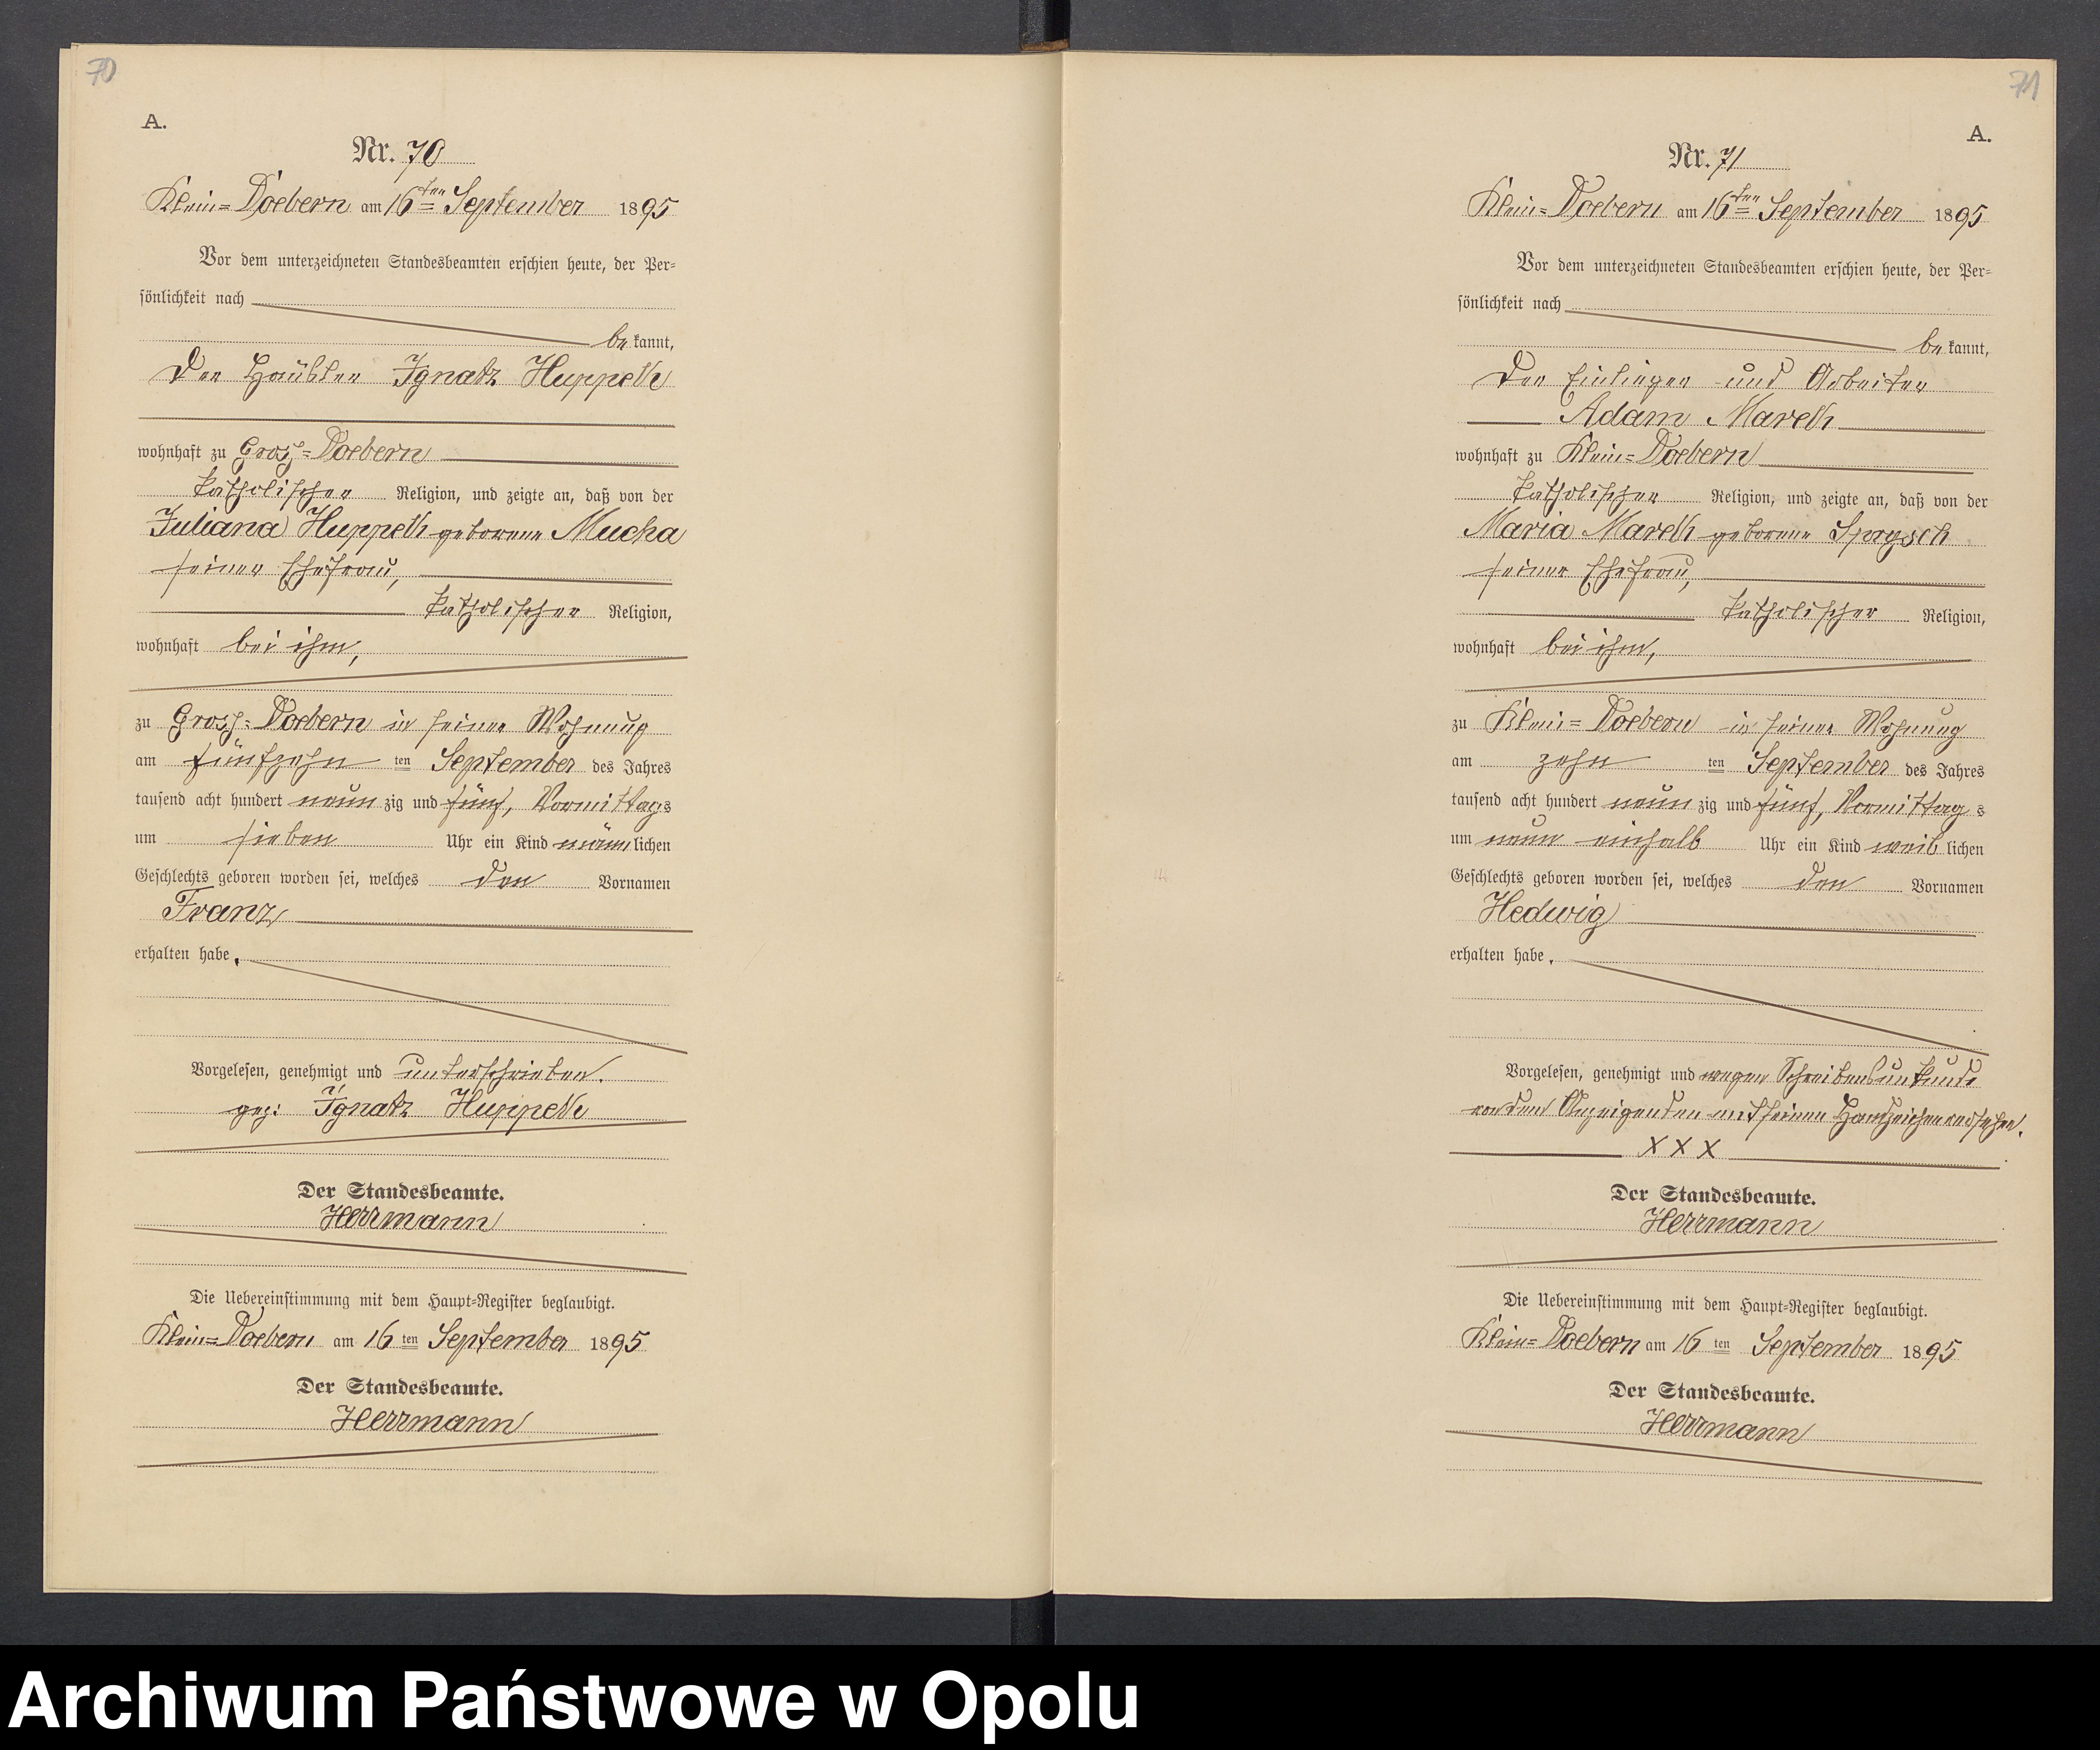 70
A.
Nr. 70
Klein=Doebern am 16ten September 1895
Vor dem unterzeichneten Standesbeamten erschien heute, der Per=
sönlichkeit nach
be kannt,
der Häusler Ignatz Huppeth
wohnhaft zu Gross=Doebern
katholischer Religion, und zeigte an, daß von der
Juliana Huppeth geborene Mucha
seiner Ehefrau,
katholischer Religion,
wohnhaft bei ihm,
zu Gross=Doebern in seiner Wohnung
am fünfzehn ten September des Jahres
tausend acht hundert neun zig und fünf, Vormittags
um sieben Uhr ein Kind männlichen
Geschlechts geboren worden sei, welches den Vornamen
Franz
erhalten habe.
Vorgelesen, genehmigt und unterschrieben.
gez: Ignatz Huppeth
Der Standesbeamte.
Herrmann
Die Uebereinstimmung mit dem Haupt=Register beglaubigt.
Klein=Doebern am 16 ten September 1895
Der Standesbeamte.
Herrmann
71
A.
Nr. 71
Klein=Doebern am 16ten September 1895
Vor dem unterzeichneten Standesbeamten erschien heute, der Per=
sönlichkeit nach
be kannt,
der Einlieger und Arbeiter
Adam Mareth
wohnhaft zu Klein=Doebern
katholischer Religion, und zeigte an, daß von der
Maria Mareth geborene
seiner Ehefrau,
katholischer Religion,
wohnhaft bei ihm,
zu Klein=Doebern in seiner Wohnung
am zehn ten September des Jahres
tausend acht hundert neun zig und fünf, Vormittag s
um neun einhalb Uhr ein Kind weib lichen
Geschlechts geboren worden sei, welches den Vornamen
Hedwig
erhalten habe.
Vorgelesen, genehmigt und wegen Schreibensunkunde
von dem Anzeigenden mit seinem Handzeichen versehen.
X X X
Der Standesbeamte.
Herrmann
Die Uebereinstimmung mit dem Haupt=Register beglaubigt.
Klein=Doebern am 16 ten September 1895
Der Standesbeamte.
Herrmann
Archiwum Państwowe w Opolu